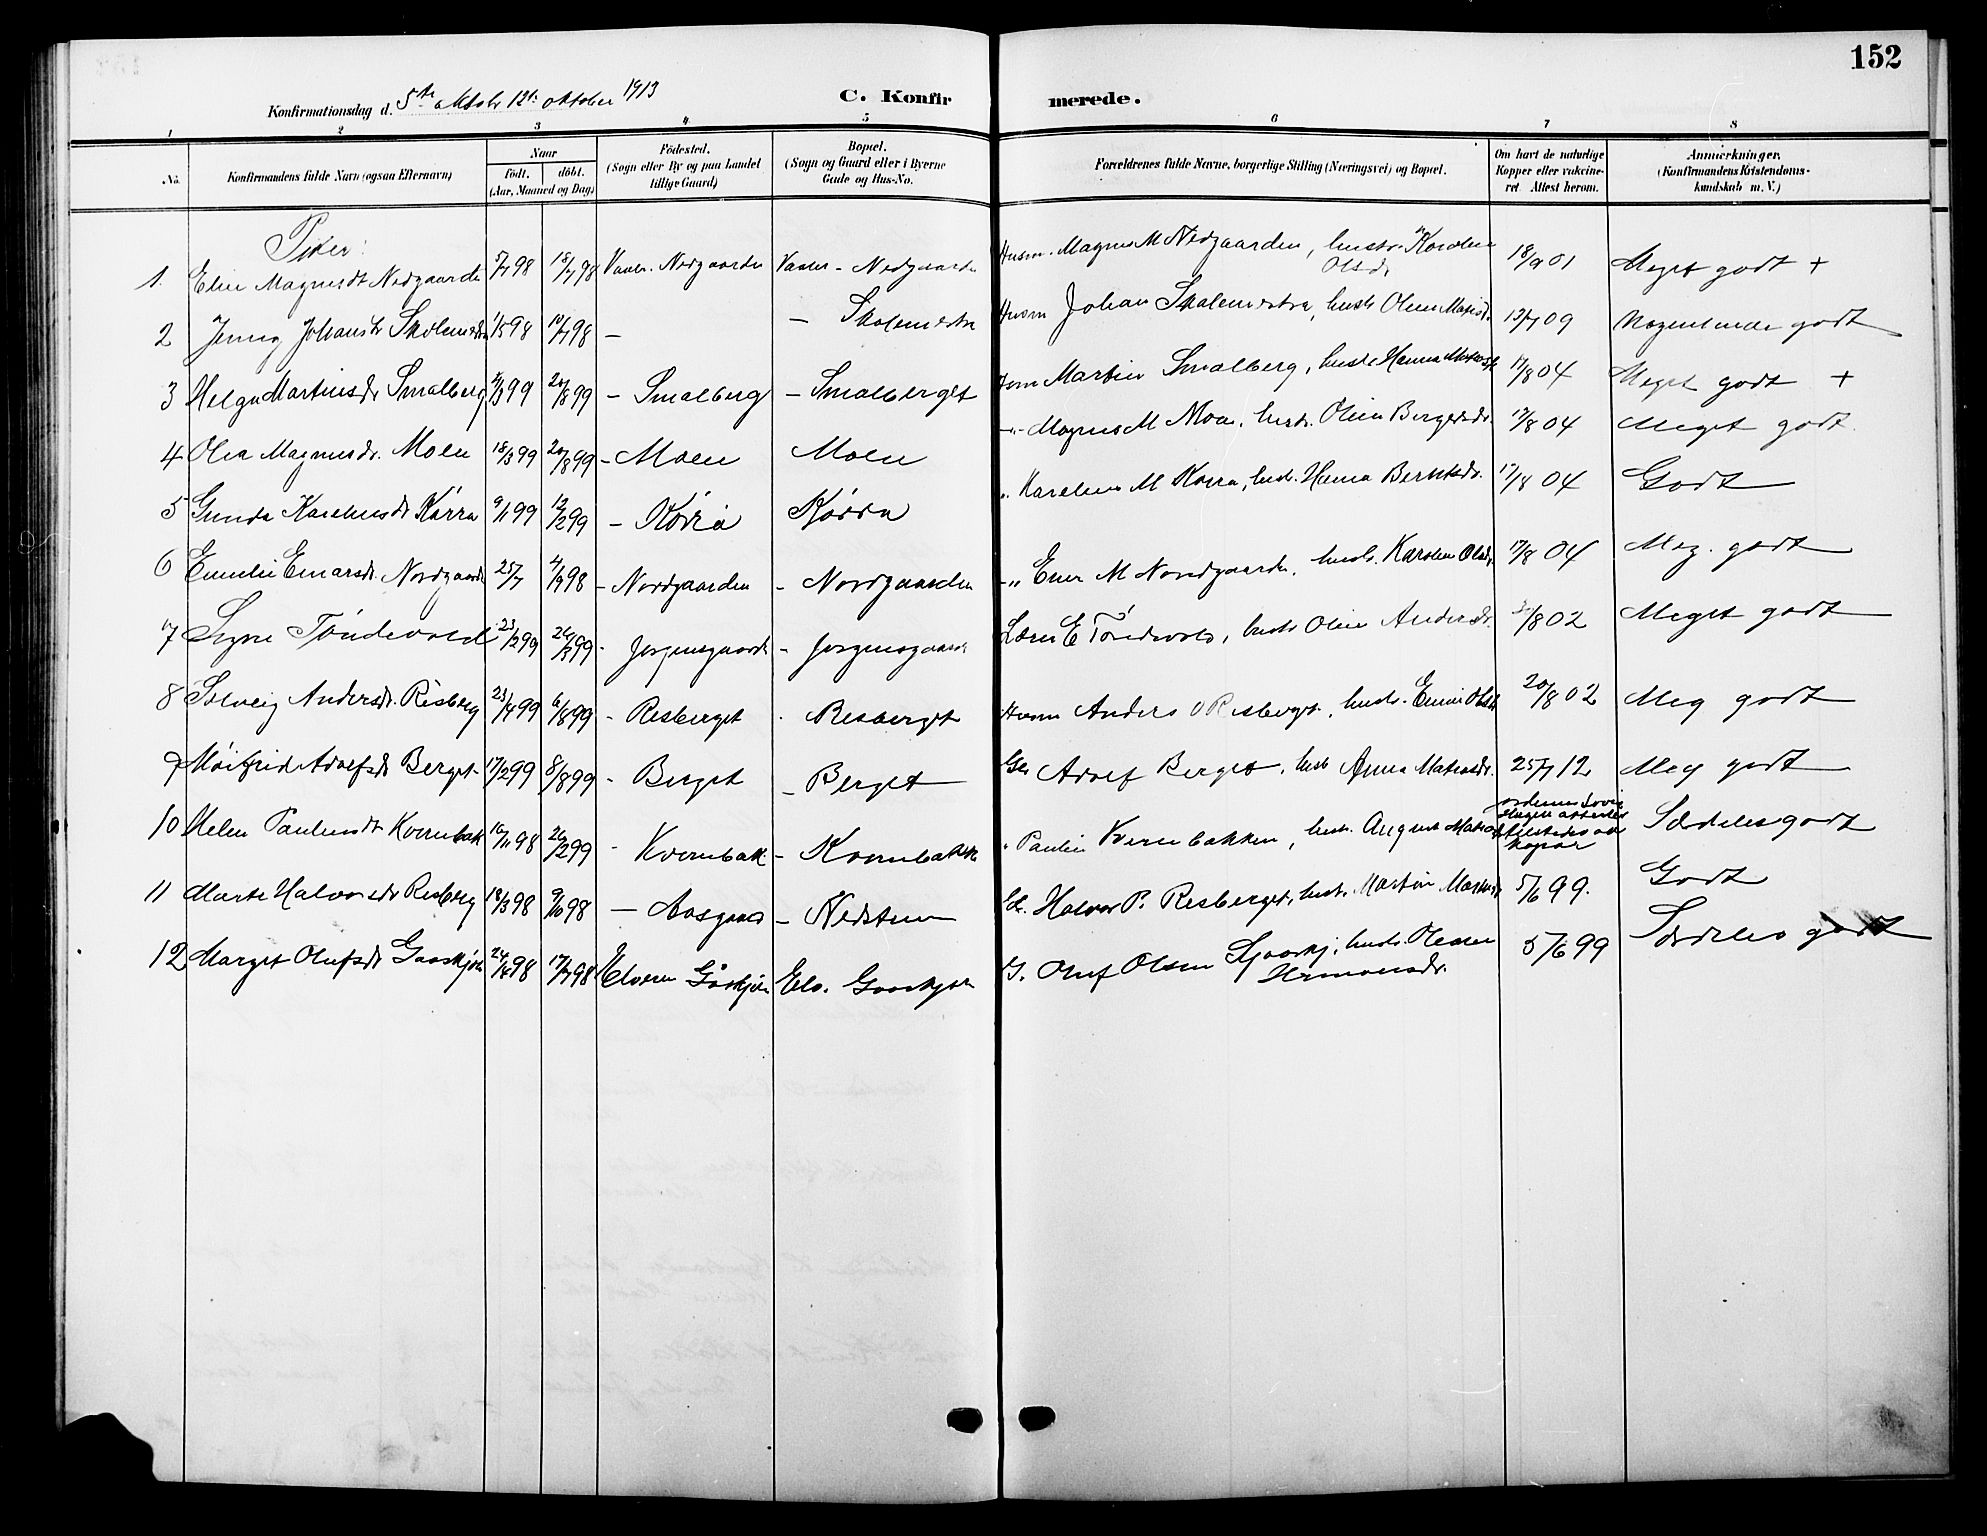 152
Konfirmationsdag d. 5te oktobr 12te oktober 1913
C. Konfirmerede.
1 2 3 4 5 6 7 8
No. Konfirmandens fulde Navn (ogsaa Efternavn) Naar født. døbt. (Aar, Maaned og Dag) Fødested. (Sogn eller By og paa Landet tillige Gaard) Bopæl. (Sogn og Gaard eller i Byerne Gade og Hus-No. Forældrenes fulde Navne, borgerlige Stilling (Næringsvei) og Bopæl. Om havt de naturlige Kopper eller vakcineret. Attest herom. Anmærkninger. (Konfirmandens Kristendomskundskab m. V.)
Piker:
1. Magnusdt Nedgaarden 98 18/7 98 Nedgaarden Nedgaarden Husm. Magnus M Nedgaarden, hustr. Karolen Olsdr 18/9 01 Meget godt +
2 Jenny Johansdr 1/5 98 10/7 98 — — Skolemestra Husm Johan Skolemestra, hustr Olene 09 Nogenlunde godt
3 Helga Martinsdr Smalberg 99 20/8 99 — Smalberg — Smalberget Martin Smalberg, hustr Hanna 17/8 04 Meget godt +
4 Olea Magnusdr. Moen 18/3 99 20/8 99 — Moen Moen —"— Magnus M Moen, hustr. Oline Bergersdr. 17/8 04 Meget godt.
5 Gunda Kareliusdr Kørra 9/1 99 12/2 99 — Kørra Kjørra " Karelius M Kørra, hustr. Hanna Berntsdr. 17/8 04 Godt
6 Emilie Einarsdr. Nordgaarden 25/7 4/9 98 — Nordgaarden — Nordgaarden —" Einer M Nordgaarden, hustr. Karolen Olsdr 17/8 04 Meg. godt
7 Signe Tøndevold 23/2 99 26/3 99 - Jørgensgaarden - Jørgensgaarden Lærer E Tøndevold, hustr Oline Andersdr. /8 02 Meget godt
8 Solveig Andersdr. Risberg 23/4 99 6/8 99 - Risberget - Risberget Husm Anders O Risberget, hustr. 20/8 02 Meg godt
9 Møifrid Adolfsdr Berget 17/2 99 8/8 99 - Berget — Berget Adolf Berget, hustr Anna Matiasdr. 25/7 12 Meg godt
10 Helen Paulinsdt Kvernbak 16/11 98 26/2 99 - Kvernbak — Kvernbakken " Paulin Kvernbakken, hustr. August Særdeles godt
11 Marte Halvorsdr Risberg 18/3 98 9/10 98 — Aasgaard — Nedstuen Halvor P. Risberget, hustr. Martin 5/6 99. Godt
12 Marget Olufsdr Gaaskjøn 24/4 98 17/7 98 Elveren Gåskjøn Elv. Gaaskjøn G. Oluf Olsen hustr. Olene Hermansdr. 5/6 99 Særdeles godt